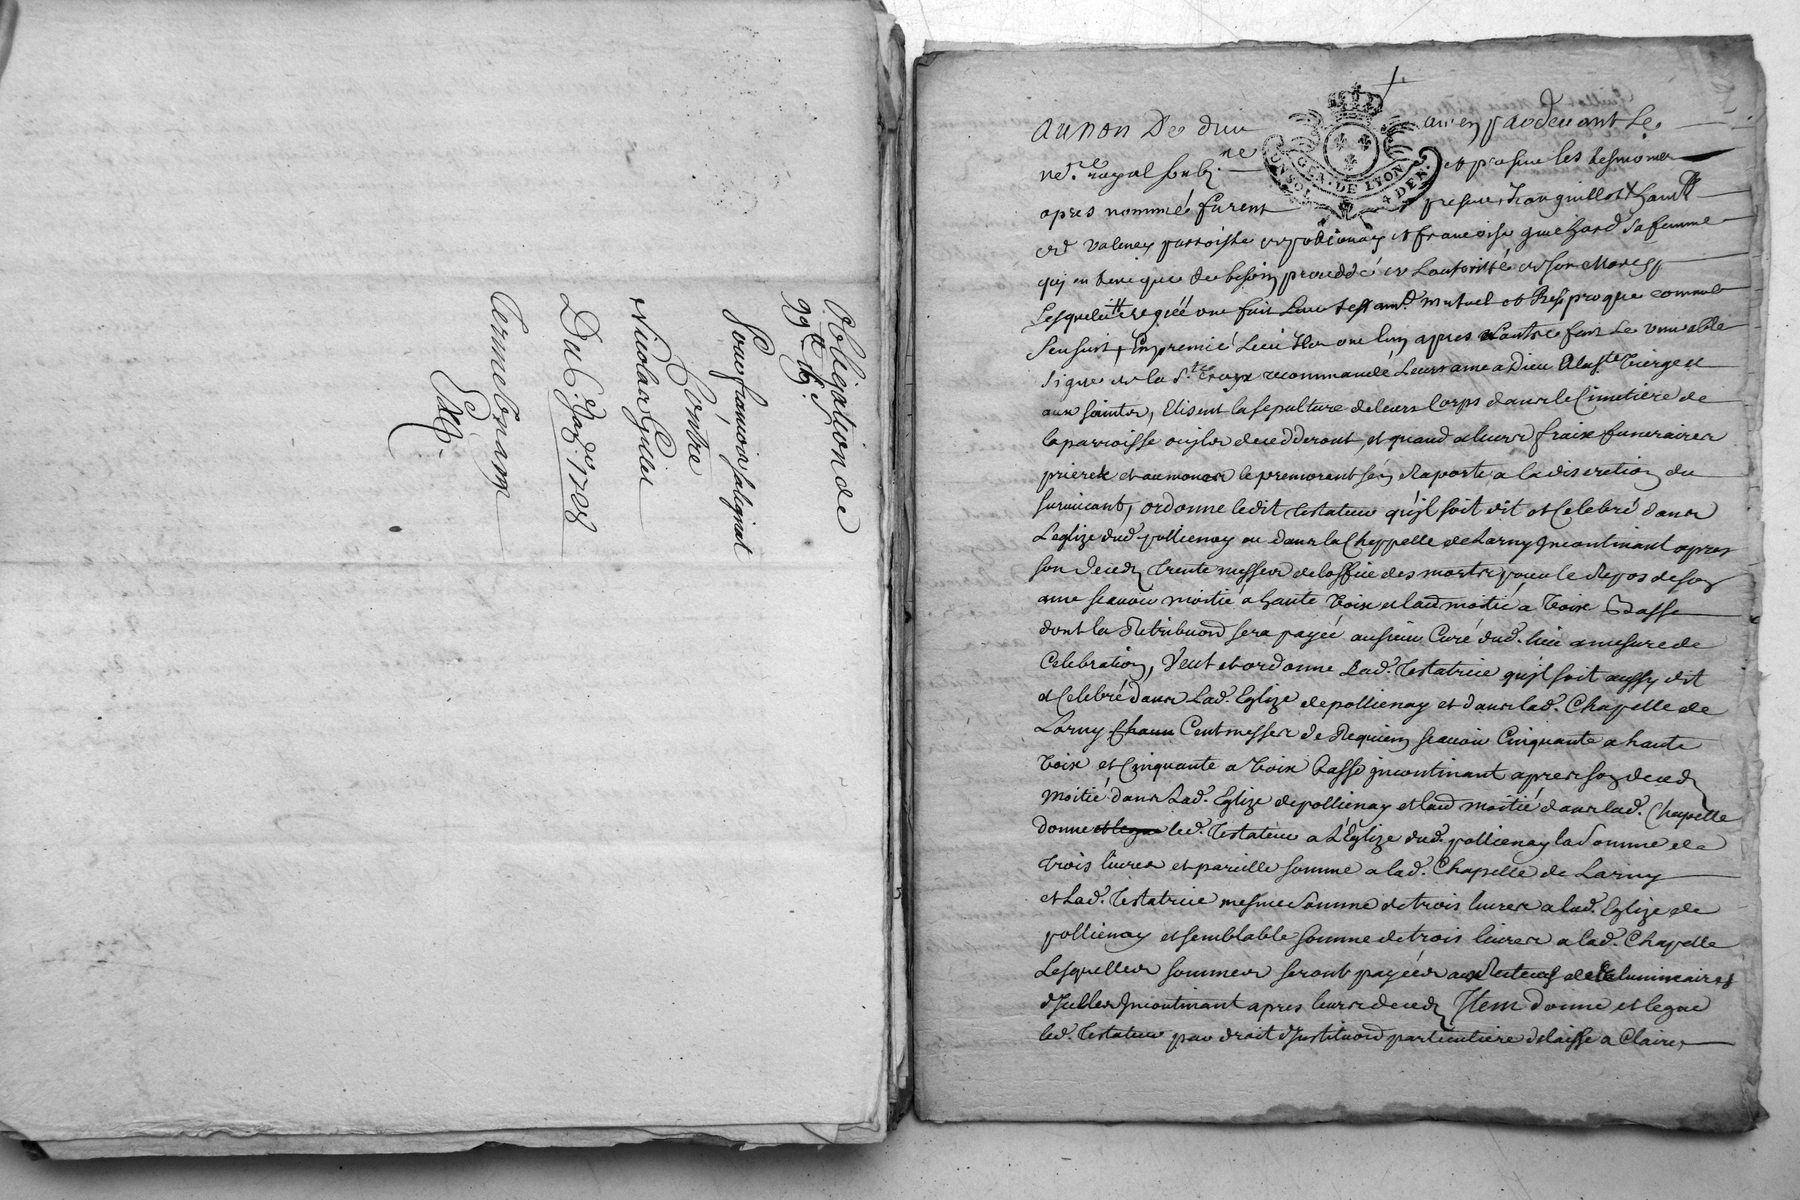 Obligation de
99 ₶ 16 s.
Sous françois salignat
Contre
Nicolas Gillu
Du 6e Janr. 1708
Au nom De dieu amen pardevant Le
nore. royal soubz.ne et presens les tesmoins
GEN. DE LYON
4 DEN.
apres nommés furent presens, Jean guillot habitt.
de valeney parroisse de pollionay et francoise guichard sa femme
qui en tant que de besoin procedde de Lautorité de son Mary
Lesquels de gré ont fait Leur testamt. mutuel et Reciproque comme
sensuit, En premié Lieu Ils ont lun apres Lautre fait Le venerable
signe de la Ste. Croix recommandé Leurs ame a Dieu A la ste. Vierge et
aux saints, Elisent la sepulture de leurs Corps dans le Cimetiere de
la parroisse ou ils decedderont, et quand a leurs fraix funeraires
prieres et aumones le premourant sen raporte a la discretion du
survivant, ordonne ledit testateur qu'jl soit dit et Celebré dans
L'eglize dud. pollienay ou dans la Chappelle de Larny Incontinant apres
son deceds trente messes de loffice des morts pour le Repos de son
ame scavoir moitié a haute Voix et laud moitié a Voix Basse
dont la Retribuon sera payée au sieur Curé dud. lieu a mesure de
Celebration, Veut et ordonne Lad. Testatrice qu'jl soit aussy dit
et Celebré dans Lad. Eglize de pollienay et dans lad. Chapelle de
Larny Cent messes de Requiem scavoir Cinquante a haute
Voix et Cinquante a Voix basse Jncontinant apres son deceds
Moitié dans Lad. Eglize de pollienay et laud moitié dans lad. Chapelle
donne et legue led. Testateur a L'Eglize dud. pollienay la Somme de
trois livres et pareille somme a lad. Chapelle de Larny
et Lad. Testatrice mesme somme de trois livres a lad. Eglize de
pollienay et semblable somme de trois livres a lad. Chapelle
Lesquelles sommes seront payées aux Recteurs des luminaires
d'Jcelles Jncontinant apres leurs deceds Item donne et legue
led. Testateur par droit d'Jnstituon particuliere delaisse a Claire